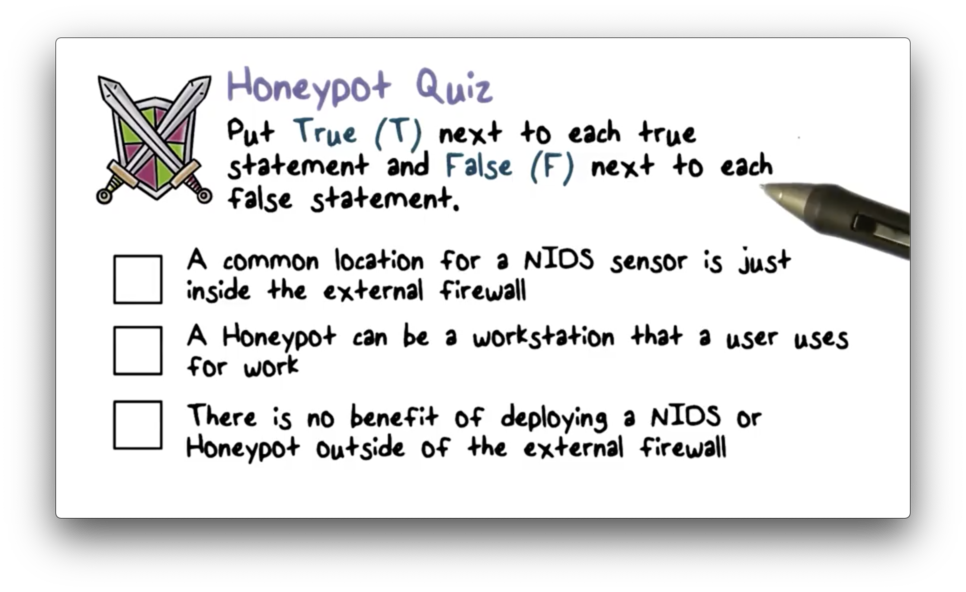 Honeypot Quiz
Put True (T) next to each true
statement and False (F) next to each
false statement.
A common location for a NIDS sensor is just
inside the external firewall
A Honeypot can be a workstation that a user uses
for work
There is no benefit of deploying a NIDS or
Honeypot outside of the external firewall